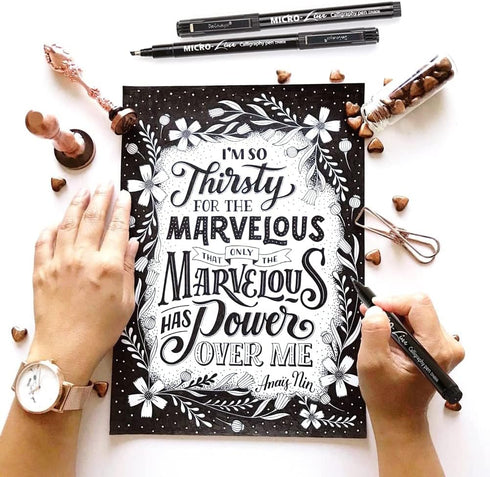 MICRO-Line Calligraphy pen
MICRO-Line Calligraphy pen
I'M SO
Thirsty
FOR THE
MARVELOUS
THAT ONLY THE
MARVELOUS
HAS Power
OVER ME
Anaïs Nin
Calligraphy pen